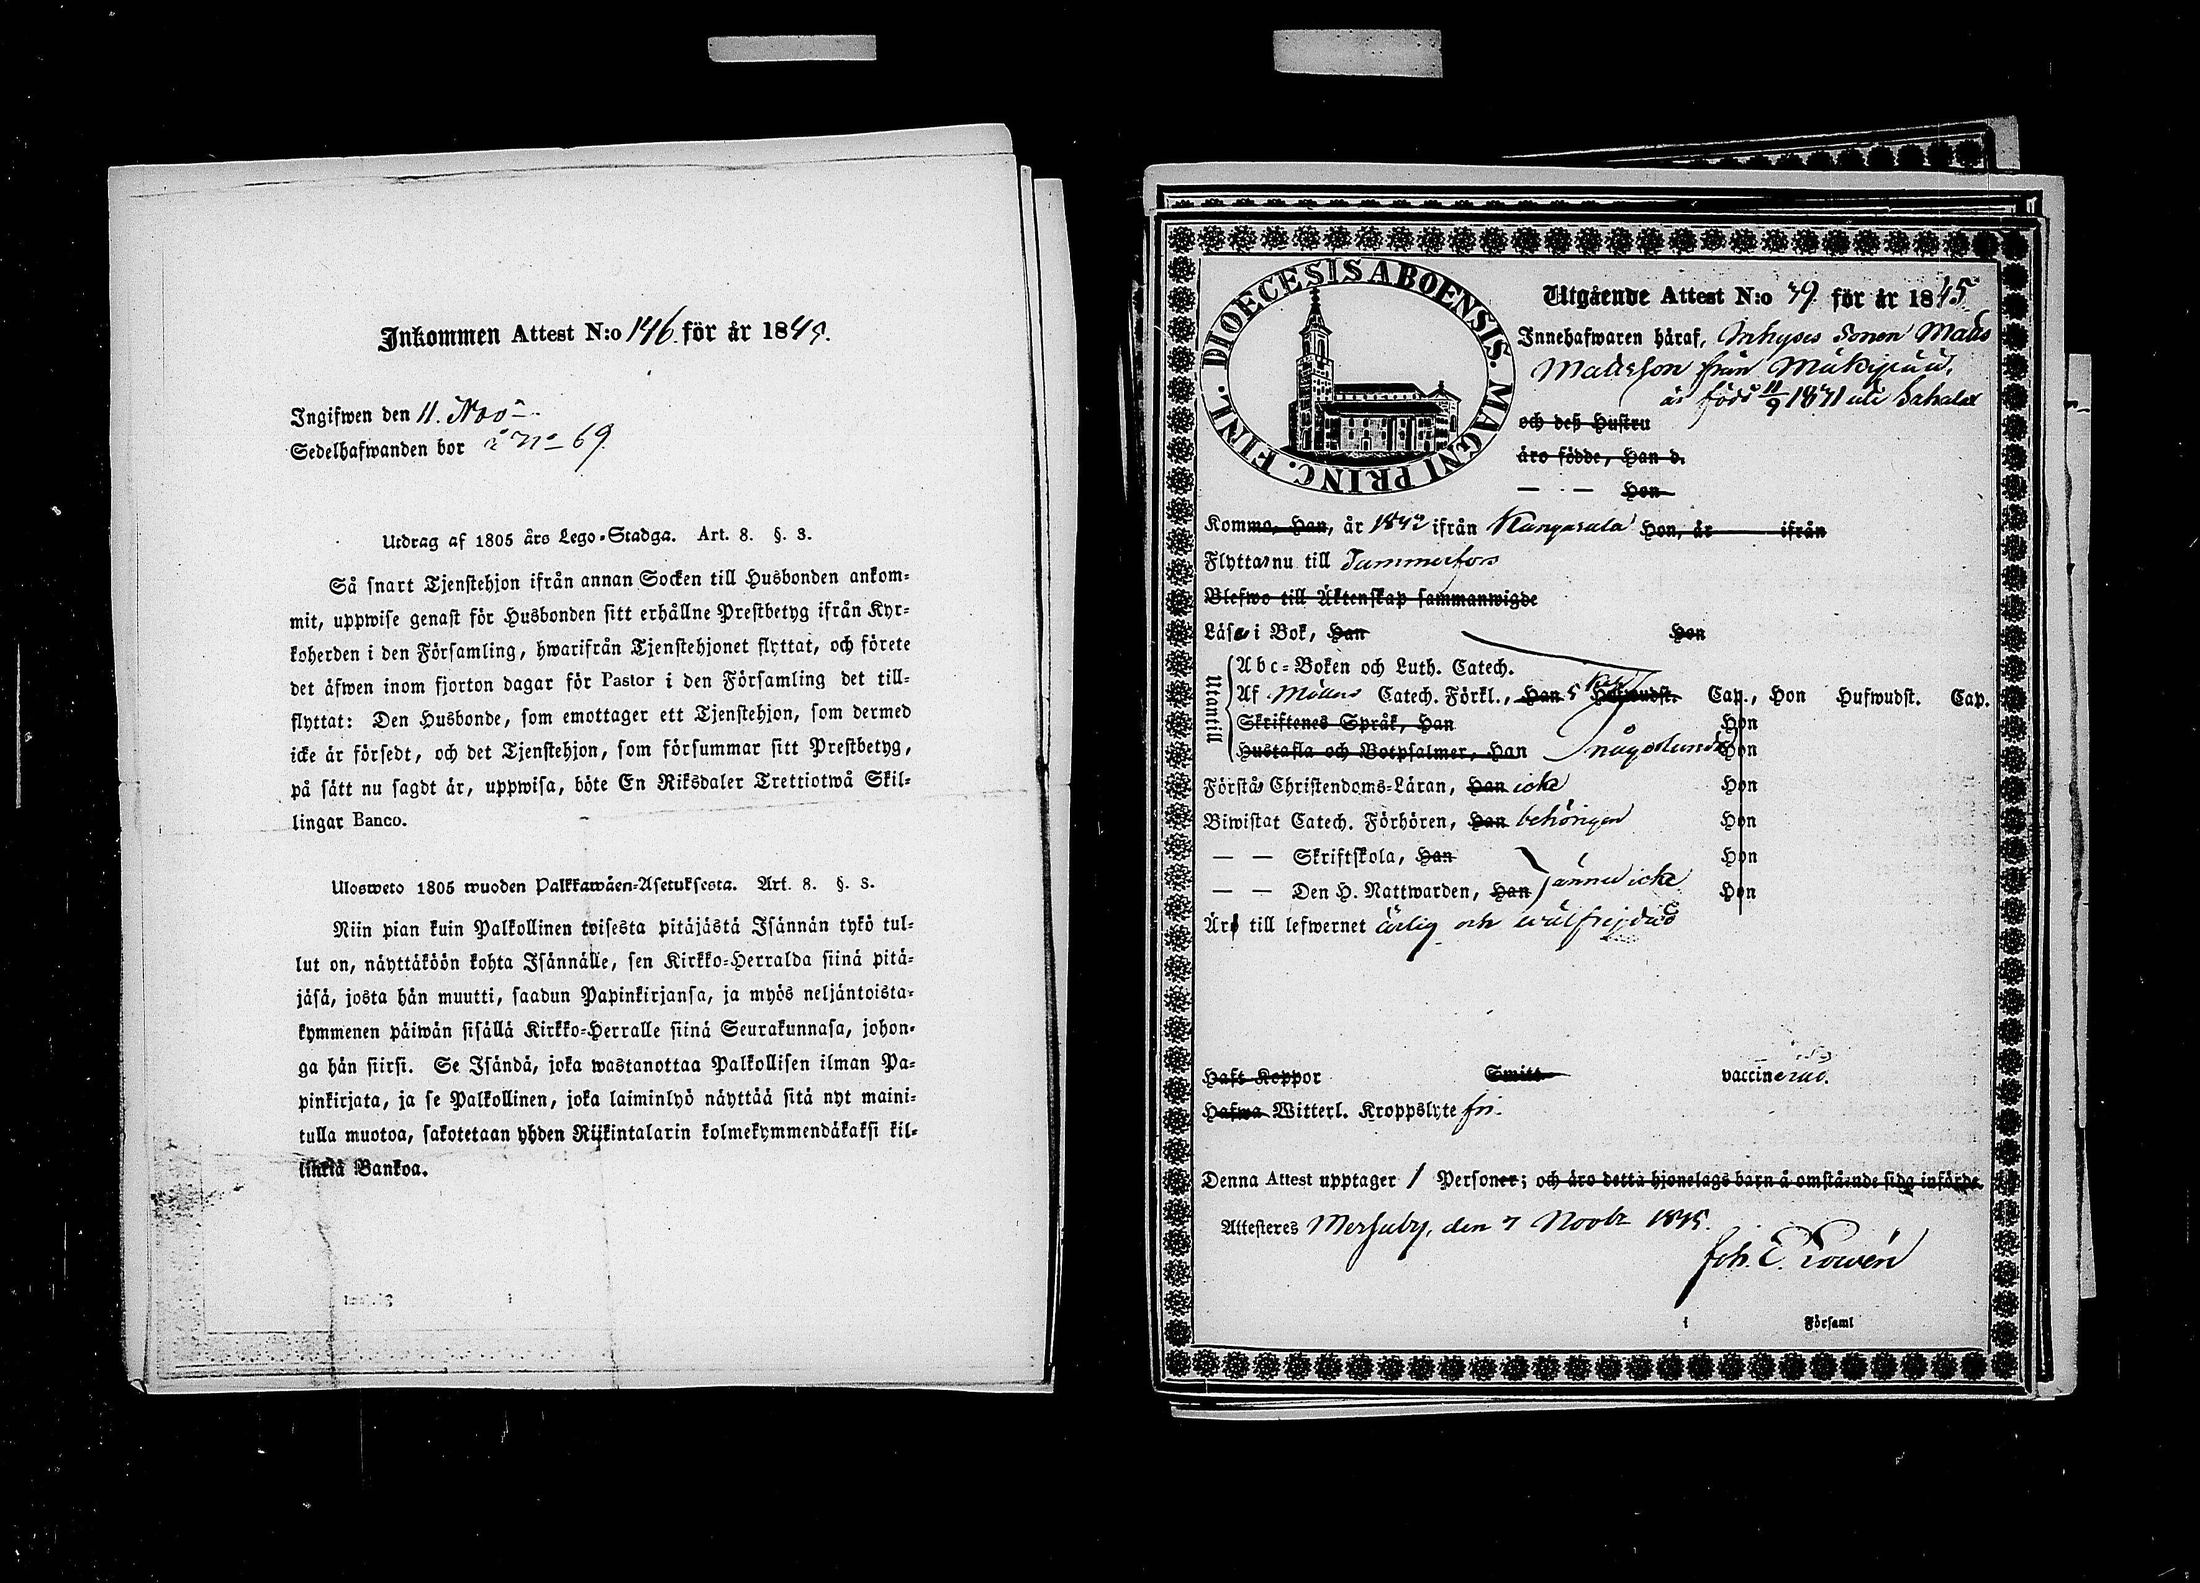 Inkommen Attest N:o 146. för år 1845.
Ingifwen den 11. Nov
Sedelhafwanden bor å No 69
Utdrag af 1805 års Lego-Stadga. Art. 8. §. 3.
Så snart Tjenstehjon ifrån annan Socken till Husbonden ankom-
mit, uppwise genast för Husbonden sitt erhållne Prestbetyg ifrån Kyr-
koherden i den Församling, hwarifrån Tjenstehjonet flyttat, och förete
det äfwen inom fjorton dagar för Pastor i den Församling det till-
flyttat: Den Husbonde, som emottager ett Tjenstehjon, som dermed
icke är försedt, och det Tjenstehjon, som försummar sitt Prestbetyg,
på sätt nu sagdt är, uppwisa, böte En Riksdaler Trettiotwå Skil-
lingar Banco.
Ulosweto 1805 wuoden Palkkawäen-Asetuksesta. Art. 8. §. 3.
Niin pian kuin Palkollinen toisesta pitäjästä Isännän tykö tul-
lut on, näyttäköön kohta Isännälle, sen Kirkko-Herralda siinä pitä-
jäsä, josta hän muutti, saadun Papinkirjansa, ja myös neljäntoista-
kymmenen päiwän sisällä Kirkko-Herralle siinä Seurakunnasa, johon-
ga hän siirsi. Se Isändä, joka wastanottaa Palkollisen ilman Pa-
pinkirjata, ja se Palkollinen, joka laiminlyö näyttää sitä nyt maini-
tulla muotoa, sakotetaan yhden Riikintalarin kolmekymmendäkaksi kil-
linkiä Bankoa.
DIOECESIS ABOENSIS. MAGNI PRINC. FINL.
Utgående Attest N:o 79 för år 1845
Innehafwaren häraf, Inhyses Sonen Matts
Mattsson från
är född 11/9 1841 uti Sahalax
och deß Hustru
äro födde, Han d.
— — Hon
Komma, Han, år 1842 ifrån Kangasala Hon, år ifrån
Flyttar nu till Tammerfors
Blefwo till Äktenskap sammanwigde
Läser i Bok, Han Hon
Utantill
Abc-Boken och Luth. Catech.
Af Möllers Catech. Förkl., Han 5 Hufwudst. Cap., Hon Hufwudst. Cap.
Skriftenes Språk, Han Hon
Hustafla och Botpsalmer, Han någorlunda Hon
Förstår Christendoms-Läran, Han icke Hon
Biwistat Catech. Förhören, Han behörigen Hon
— — Skriftskola, Han Hon
— — Den H. Nattwarden, Han ännu icke Hon
Är till lefwernet ärlig och wälfrejdad
Haft Koppor Smitt vaccinerad.
Hafwa Witterl. Kroppslyte fri.
Denna Attest upptager 1 Personer; och äro detta hjonelags barn å omstående sida införde.
Attesteres Messuby, den 7 Novbr 1845.
Joh. E. Rowén
i Församl